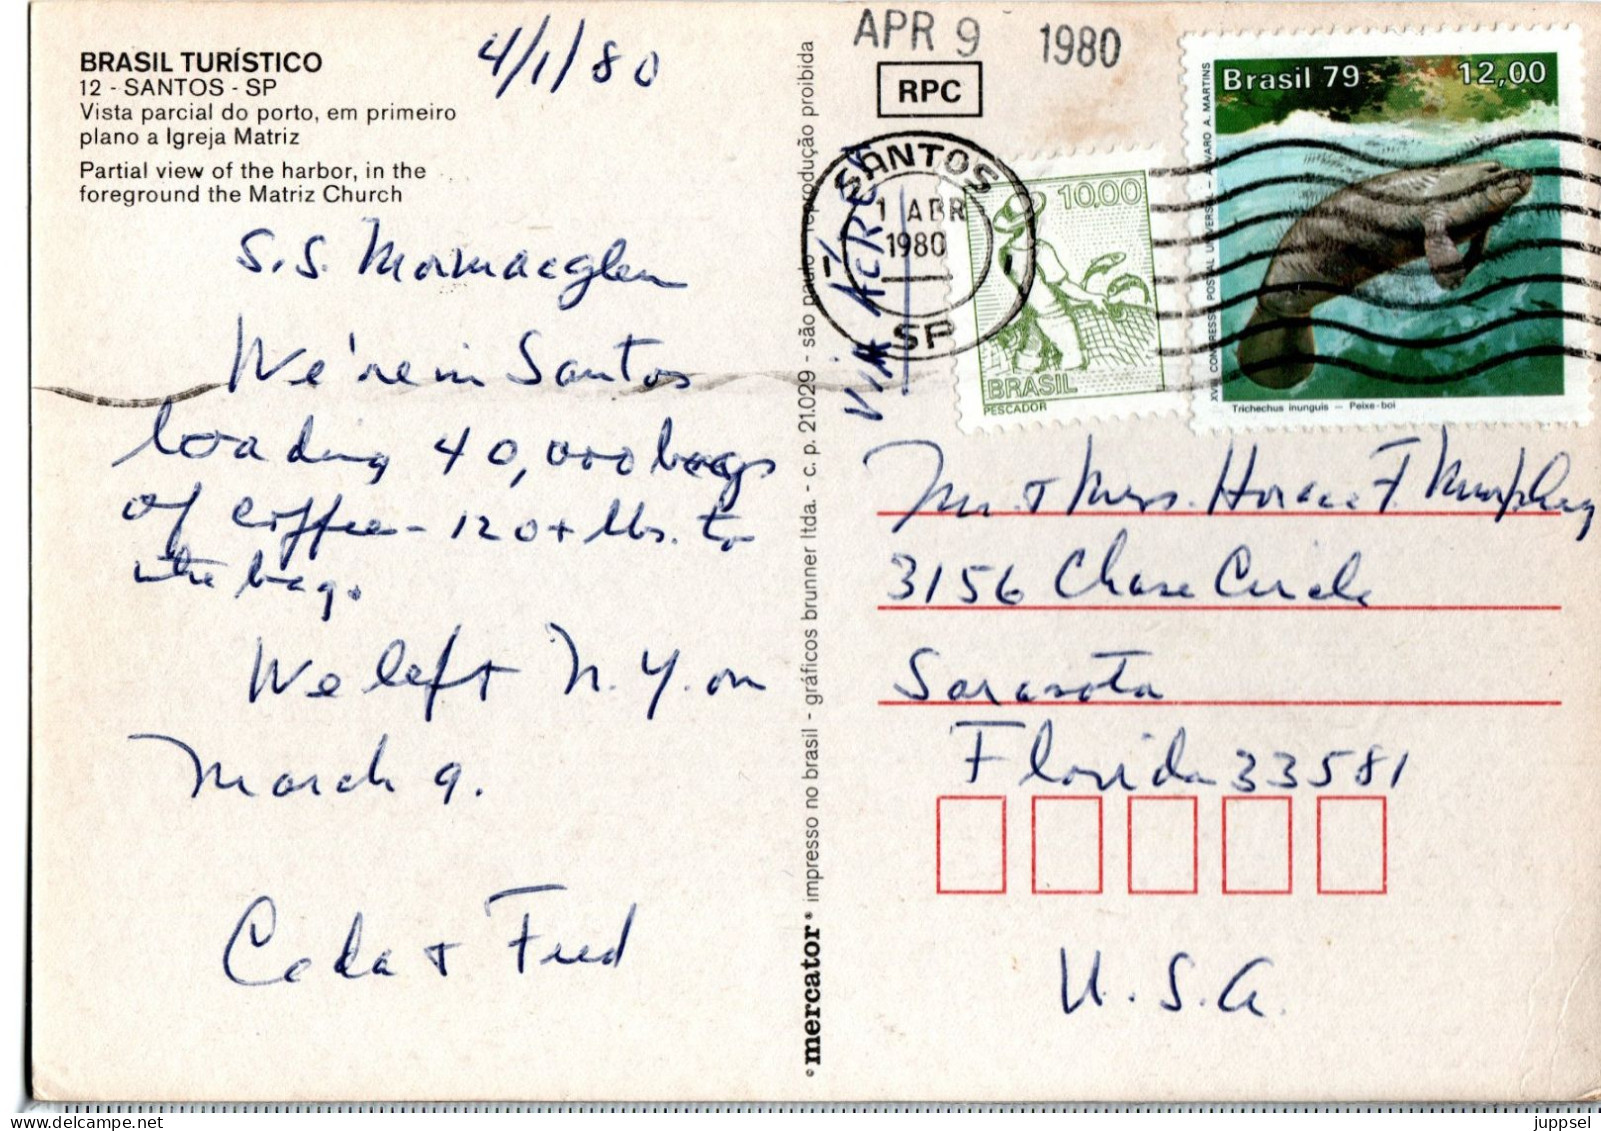 BRASIL TURÍSTICO
12 - SANTOS - SP
Vista parcial do porto, em primeiro
plano a Igreja Matriz
Partial view of the harbor, in the
foreground the Matriz Church
4/1/80
S.S. Mormacglen
We're in Santos
loading 40,000 bags
of coffee - 120+ lbs. to
the bag.
We left N.Y. on
March 9.
+ Fred
© mercator ® impresso no brasil - gráficos brunner ltda. - c. p. 21.029 - são paulo - reprodução proibida
APR 9 1980
RPC
SANTOS
1 ABR
1980
SP
VIA
10,00
BRASIL
PESCADOR
Brasil 79 12,00
XVIII CONGRESSO POSTAL UNIVERSAL – ALVARO A. MARTINS
Trichechus inunguis — Peixe-boi
Mr. + Mrs. Horace F. Murphey
3156 Chase Circle
Sarasota
Florida 33581
U.S.A.
juppsel